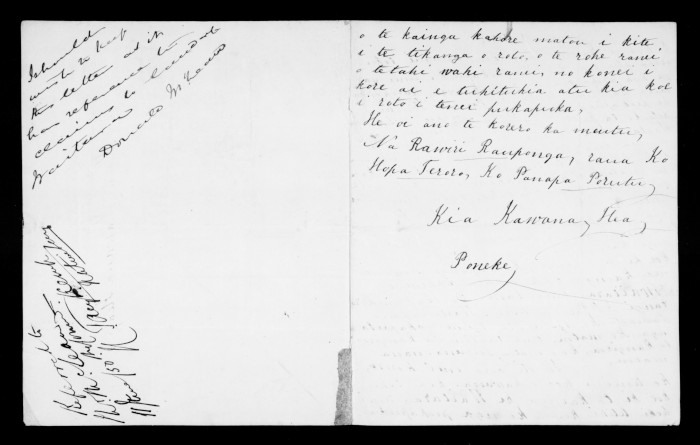 I should
wish to keep
this letter as it
has reference to
claims to land at
Waitara
Donald McLean
Referred to
Mr McLean
11 Jany 50
o te kainga kahore matou i kite
i te tikanga o roto, o te rohe ranei
o tetahi wahi ranei, no konei i
kore ai e tuhituhia atu kia koe
i roto i tenei pukapuka,
He oi ano te korero ka mutu,
Na Rawiri Rauponga, raua Ko
Hopa Teroro, Ko Panapa Porutu,
Kia Kawana, Hia,
Poneke,